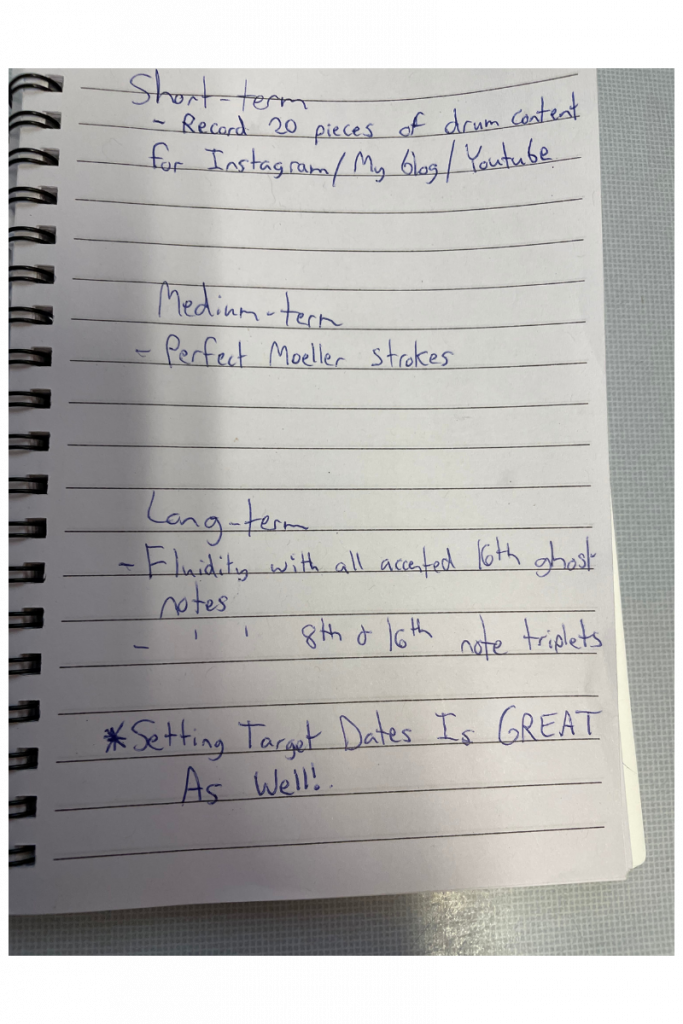 Short-term
- Record 20 pieces of drum content
for Instagram/My blog/Youtube
Medium-term
- Perfect Moeller strokes
Long-term
- Fluidity with all accented 16th ghost
notes
- ' ' 8th & 16th note triplets
*Setting Target Dates Is GREAT
As Well!